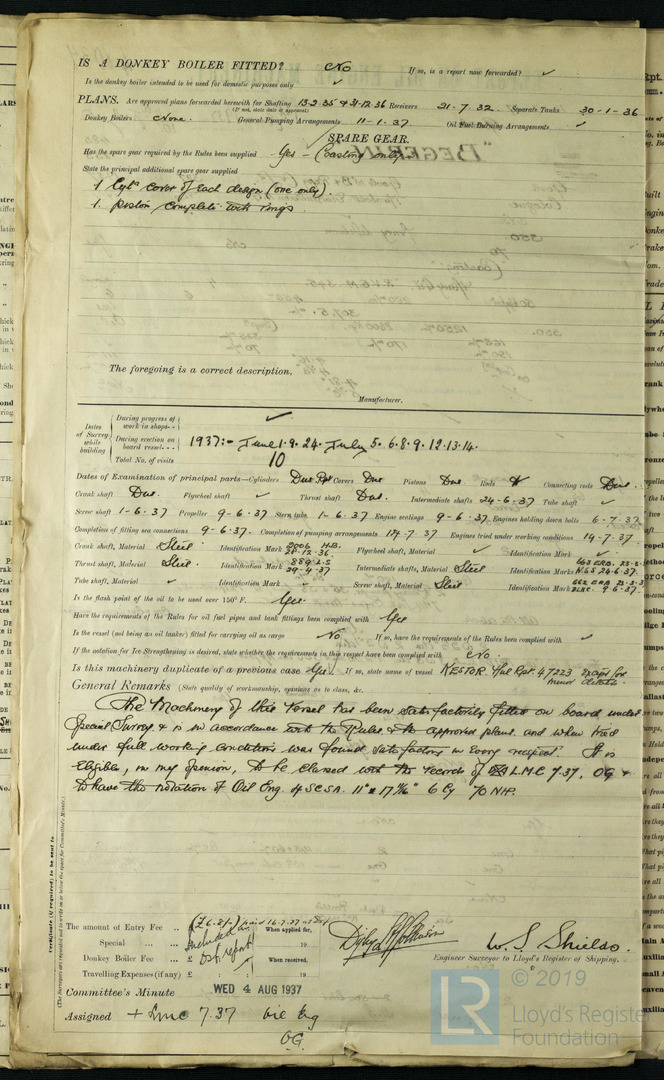 IS A DONKEY BOILER FITTED? No If so, is a report now forwarded? ✓
Is the donkey boiler intended to be used for domestic purposes only ✓
PLANS. Are approved plans forwarded herewith for Shafting 13-2-35 & 31-12-36 Receivers 21-7-32 Separate Tanks 30-1-36
(If not, state date of approval)
Donkey Boilers None. General Pumping Arrangements 11-1-37 Oil Fuel Burning Arrangements ✓
SPARE GEAR.
Has the spare gear required by the Rules been supplied Yes - (Coasting only).
State the principal additional spare gear supplied
1 Cylr cover of each design (one only).
1. piston complete with rings.
The foregoing is a correct description,
Manufacturer.
Dates of Survey while building
During progress of work in shops - - ✓
During erection on board vessel - - - 1937:- June 1. 9. 24. July 5. 6. 8. 9. 12. 13. 14.
Total No. of visits 10
Dates of Examination of principal parts—Cylinders Dus Rpt Covers Dus Pistons Dus Rods Connecting rods Dus.
Crank shaft Dus. Flywheel shaft ✓ Thrust shaft Dus. Intermediate shafts 24-6-37 Tube shaft ✓
Screw shaft 1-6-37 Propeller 9-6-37 Stern tube 1-6-37 Engine seatings 9-6-37 Engines holding down bolts 6-7-37
Completion of fitting sea connections 9-6-37. Completion of pumping arrangements 14-7-37 Engines tried under working conditions 14-7-37
Crank shaft, Material Steel Identification Mark 2006 H.B. 31-12-36. Flywheel shaft, Material ✓ Identification Mark ✓
Thrust shaft, Material Steel. Identification Mark 889 L.S 29-4-37 Intermediate shafts, Material Steel Identification Marks N.S.S 24-6-37.
Tube shaft, Material ✓ Identification Mark ✓ Screw shaft, Material Steel Identification Mark 9-6-37.
Is the flash point of the oil to be used over 150° F. Yes
Have the requirements of the Rules for oil fuel pipes and tank fittings been complied with Yes
Is the vessel (not being an oil tanker) fitted for carrying oil as cargo No If so, have the requirements of the Rules been complied with ✓
If the notation for Ice Strengthening is desired, state whether the requirements in this respect have been complied with No.
Is this machinery duplicate of a previous case Yes. If so, state name of vessel NESTOR Hul Rpt. 47223 except for minor details.
General Remarks (State quality of workmanship, opinions as to class, &c.
The Machinery of this Vessel has been satisfactorily fitted on board under
Special Survey & is in accordance with the Rules & the approved plans. and when tried
under full working conditions was found satisfactory in every respect. It is
eligible, in my opinion, to be classed with the records of LMC 7.37, OG &
to have the notation of Oil Eng. 4SCSA. 11" x 17 11/16" 6 Cy 70 NHP.
Certificate (if required) to be sent to
(The Surveyors are requested not to write on or below the space for Committee's Minute.)
The amount of Entry Fee .. (£6.8/-) paid 16.7.37 When applied for,
Special ... ... £ included in 19
Donkey Boiler Fee ... £ Dsf. report! When received,
Travelling Expenses (if any) £ : : 19
W. S. Shields.
Engineer Surveyor to Lloyd's Register of Shipping.
Committee's Minute WED 4 AUG 1937
Assigned + Lmc 7.37 Oil Eng
OG.
© 2019
LR Lloyd's Register
Foundation